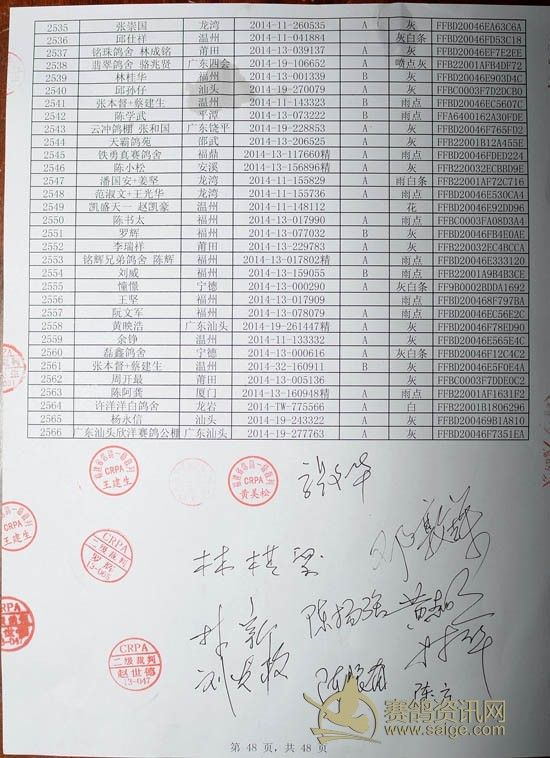 2535 张崇国 龙湾 2014-11-260535 A 灰 FFBD20046EA63C6A
2536 邱仕祥 温州 2014-11-041884 A 灰白条 FFBD20046FD53C18
2537 铭珠鸽舍 林成铭 莆田 2014-13-039137 A 灰 FFBD20046EF7E2EE
2538 翡翠鸽舍 骆兆贤 广东四会 2014-19-106652 A 喷点灰 FFB22001AFB4DF72
2539 林桂华 福州 2014-13-001339 B 灰 FFBD20046E903D4C
2540 邱孙仔 汕头 2014-19-270079 A 灰 FFBC0003F7D2DCB0
2541 张本督+蔡建生 温州 2014-11-143323 B 雨点 FFBD20046EC5607C
2542 陈学武 平潭 2014-13-073222 B 雨点 FFA6400162A30FDE
2543 云冲鸽棚 张和国 广东饶平 2014-19-228853 A 灰 FFBD20046F765FD2
2544 天霸鸽苑 邵武 2014-13-206525 A 灰 FFB22001B12A455E
2545 铁勇真赛鸽舍 福鼎 2014-13-117660精 A 雨点 FFBD20046FDED224
2546 陈小松 安溪 2014-13-156896精 A 雨点 FFB220032ECBBD9E
2547 潘国安+姜坚 龙湾 2014-11-155829 A 雨白条 FFB22001AF72C716
2548 范淑文+王光华 龙湾 2014-11-155736 A 雨点 FFBD20046E530CA4
2549 凯盛天一 赵凯豪 温州 2014-11-148112 A 花 FFBD20046E92DD96
2550 陈书太 福州 2014-13-017990 A 雨点 FFBC0003FA08D3A4
2551 罗辉 福州 2014-13-077032 B 灰 FFBD20046FB4E0AE
2552 李瑞祥 莆田 2014-13-229783 A 灰 FFB220032EC4BCCA
2553 铭辉兄弟鸽舍 陈辉 福州 2014-13-017802精 A 雨点 FFBD20046E333120
2554 刘威 福州 2014-13-159055 B 雨点 FFB22001A9B4B3CE
2555 憧憬 宁德 2014-13-000290 A 灰白条 FF9B0002BDDA1692
2556 王坚 福州 2014-13-017909 雨点 FFBD200468F797BA
2557 阮文军 福州 2014-13-078079 A 雨点 FFBD20046EC56E2C
2558 黄映浩 广东汕头 2014-19-261447精 A 灰 FFBD20046F78ED90
2559 余铮 温州 2014-11-133332 A 灰 FFBD20046E565E4C
2560 磊鑫鸽舍 宁德 2014-13-000616 A 灰白条 FFBD20046F12C4C2
2561 张本督+蔡建生 温州 2014-32-160911 B 灰 FFBD20046E5F0E4A
2562 周开最 莆田 2014-13-005136 灰 FFBC0003F7DDE0C2
2563 陈阿龚 厦门 2014-13-160948精 A 雨点 FFB22001AF1631F2
2564 许洋洋白鸽舍 龙岩 2014-TW-775566 A 白 FFB22001B1806296
2565 杨永信 汕头 2014-19-243322 A 灰 FFBD200469B1A810
2566 广东汕头欣洋赛鸽公棚 广东汕头 2014-19-277763 A 灰 FFBD20046F7351EA
CRPA
王建生
CRPA
黄美松
CRPA
王建生
CRPA
二级裁判
罗辉
13-065
林棋
陈扬强
林新
CRPA
二级裁判
赵世德
13-047
赛鸽资讯网
www.saige.com
第 48 页，共 48 页